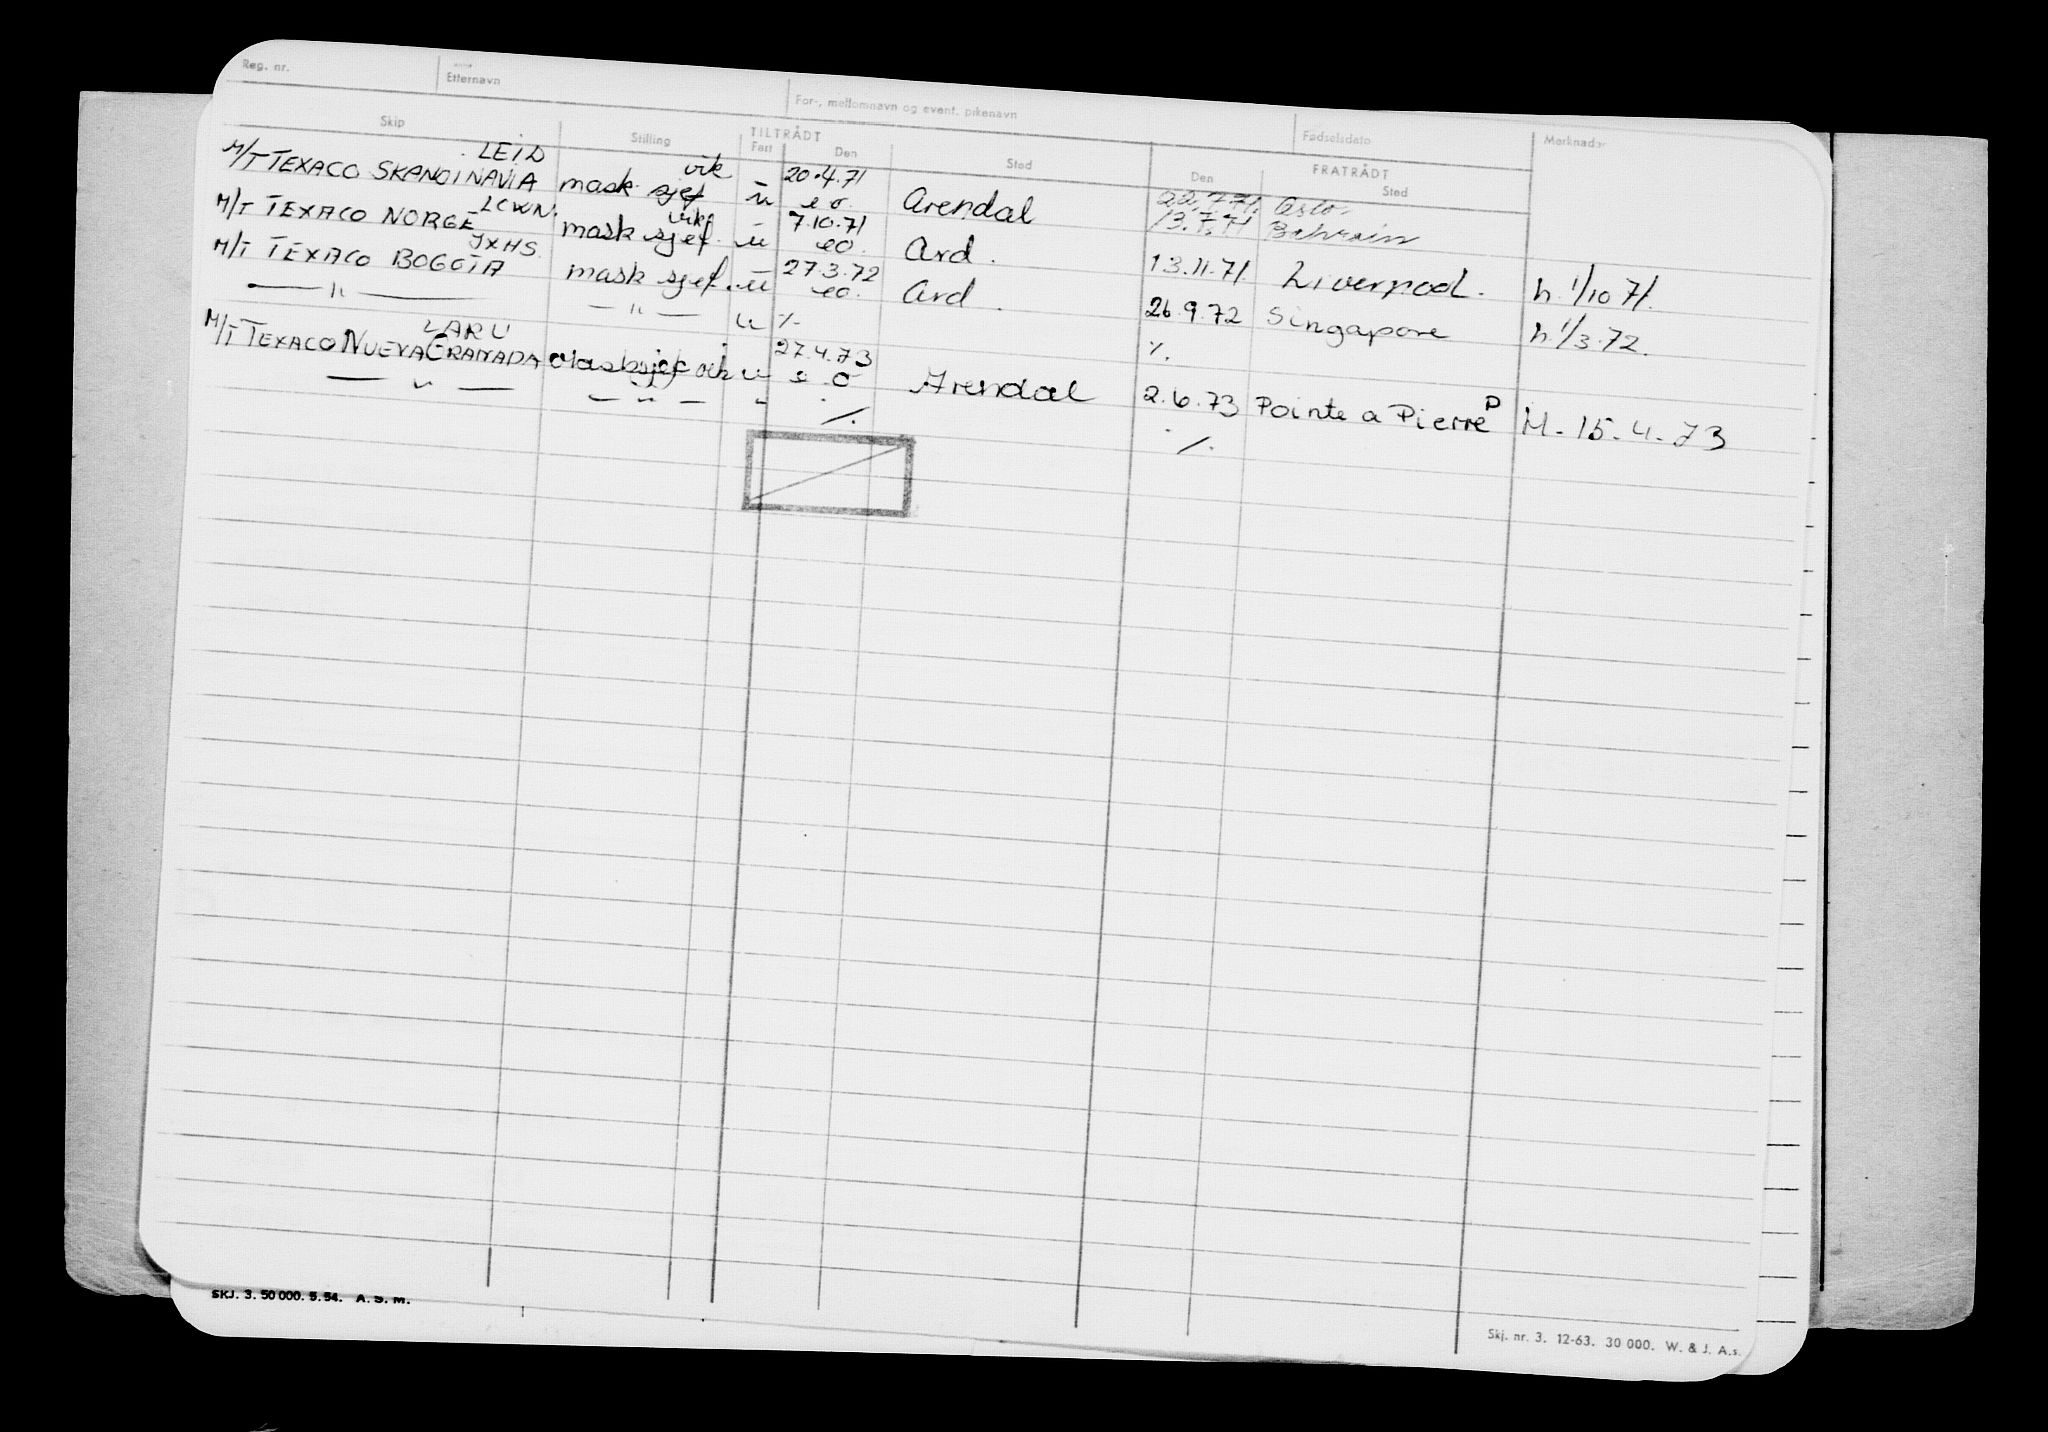 Reg. nr. Etternavn For-, mellomnavn og event. pikenavn Fødselsdato Merknader
Skip Stilling TILTRÅDT FRATRÅDT
Fast Den Sted Den Sted
LEID vik 20.4.71 22.7.71. Oslo.
M/T TEXACO SKANDINAVIA mask. sjef u e o. Arendal 13.7.71 Bahrain
LCWN. vik 7.10.71
M/T TEXACO NORGE mask sjef. u eo. Ard. 13.11.71. Liverpool. h. 1/10 71.
JXHS. 27.3.72
M/T TEXACO BOGOTA mask sjef. u eo. Ard. 26.9.72 Singapore h. 1/3.72.
— " — — " — u %. %.
LARU 27.4.73
M/T TEXACO NUEVA GRANADA Masksjef vik u e o Arendal 2.6.73 Pointe a Pierre P H. 15.4.73
— " — — " — " /. /.
SKJ. 3. 50 000. 5.54. A. S. M.
Skj. nr. 3. 12-63. 30 000. W. & J. A.s.